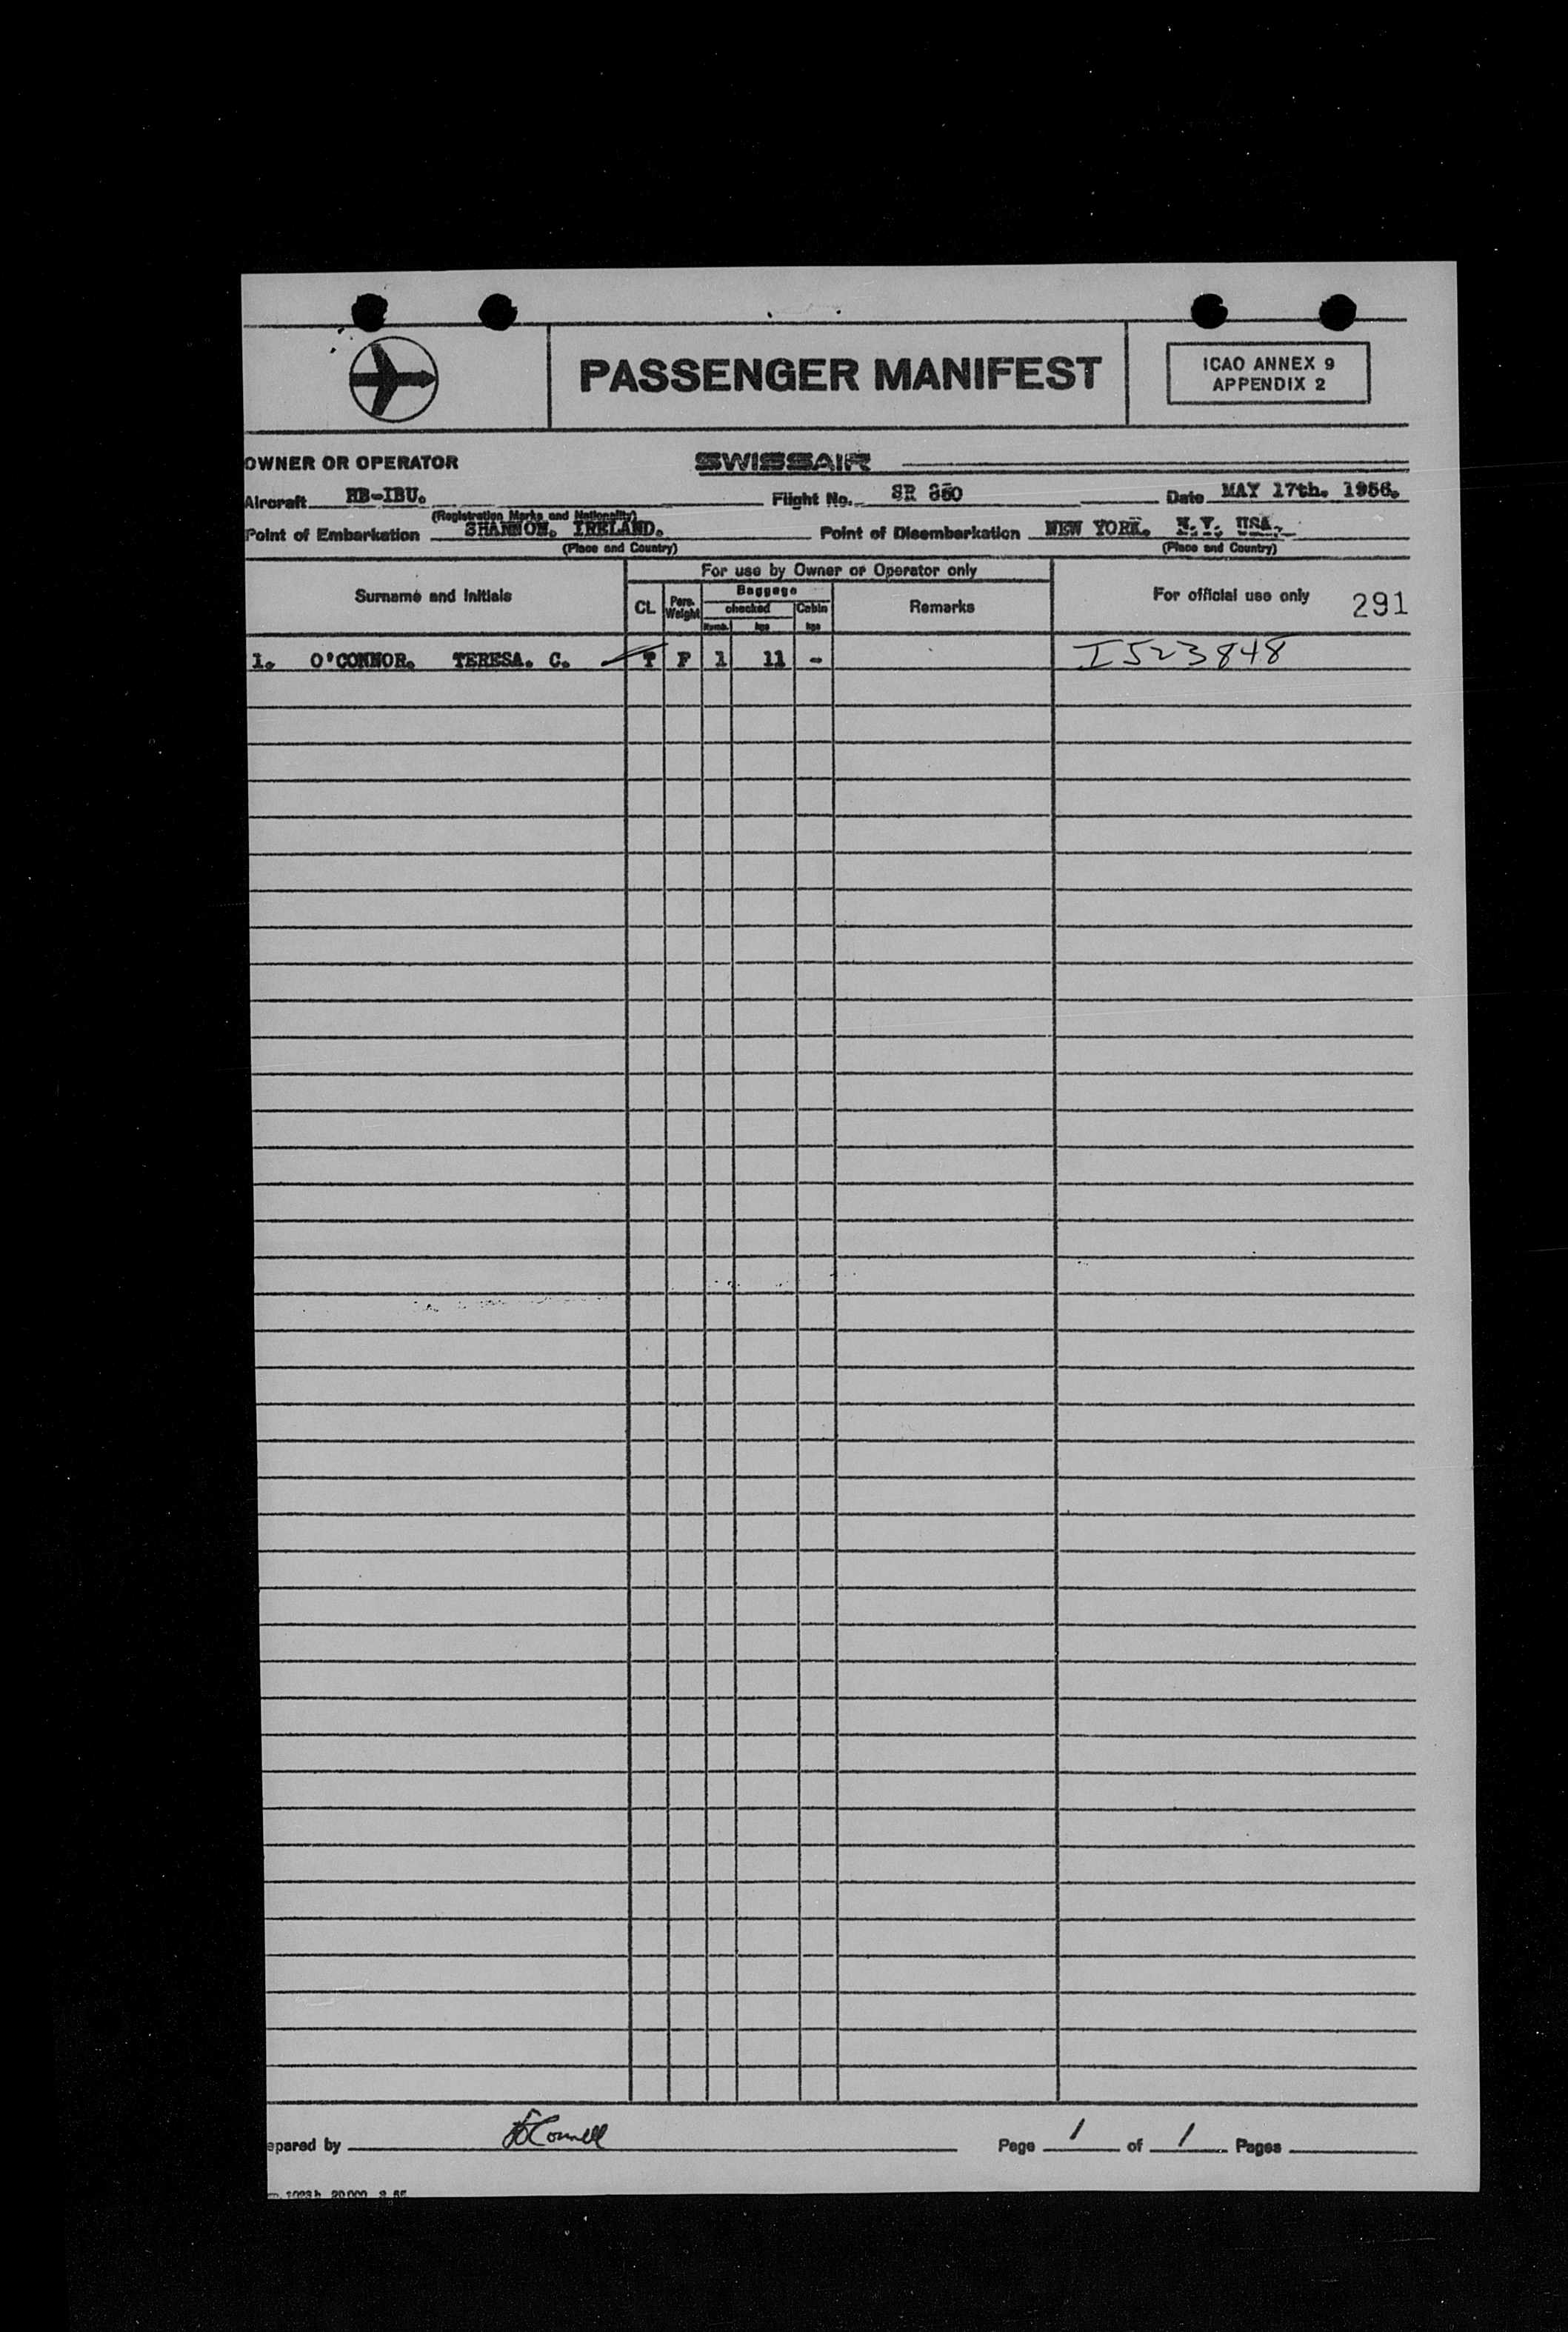 PASSENGER MANIFEST
ICAO ANNEX 9
APPENDIX 2
OWNER OR OPERATOR SWISSAIR
Aircraft HB-IBU. Flight No. SR 850 Date MAY 17th. 1956.
(Registration Marks and Nationality)
Point of Embarkation SHANNON. IRELAND. Point of Disembarkation NEW YORK. N.Y. USA.
(Place and Country) (Place and Country)
For use by Owner or Operator only
Surname and Initials CL Pers. Weight Baggage checked Cabin Remarks For official use only 291
Numb. kgs kgs
1. O'CONNOR. TERESA. C. T F 1 11 - I523848
epared by Page 1 of 1 Pages